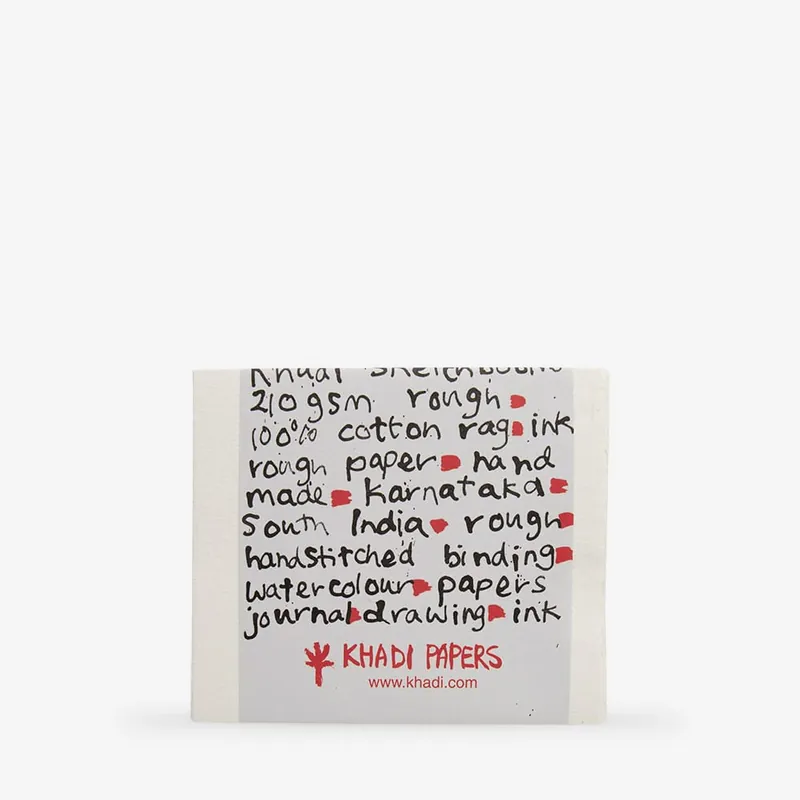 Khadi sketchbooks
210 gsm rough
100% cotton rag ink
rough paper hand
made Karnataka
South India rough
handstitched binding
watercolour papers
journal drawing ink
KHADI PAPERS
www.khadi.com